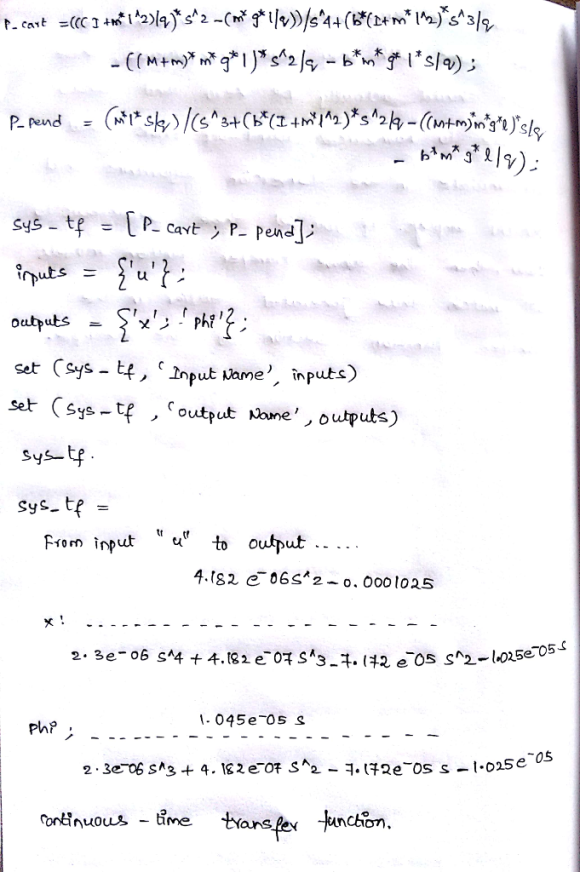 P_cart =(((I+m*l^2)/q)*s^2-(m*g*l/q))/s^4+(b*(I+m*l^2)*s^3/q
-((M+m)*m*g*l)*s^2/q - b*m*g*l*s/q);
P_pend = (m*l*s/q)/(s^3+(b*(I+m*l^2)*s^2/q-((M+m)*m*g*l)*s/q
- b*m*g*l/q);
sys_tf = [P_cart ; P_pend];
inputs = {'u'};
outputs = {'x'; 'phi'};
set (sys_tf, 'Input Name', inputs)
set (sys_tf , 'output Name', outputs)
sys_tf.
sys_tf =
From input "u" to output .....
4.182 e-06s^2-0.0001025
x: - - - - - - - - - - - - - - - - - - - -
2.3e-06 s^4 + 4.182 e-07 s^3-7.172 e-05 s^2-1.025e-05 s
1.045e-05 s
phi ; - - - - - - - - - - - - - - - - - -
2.3e-06 s^3 + 4.182e-07 s^2 - 7.172e-05 s - 1.025e-05
continuous - time transfer function.